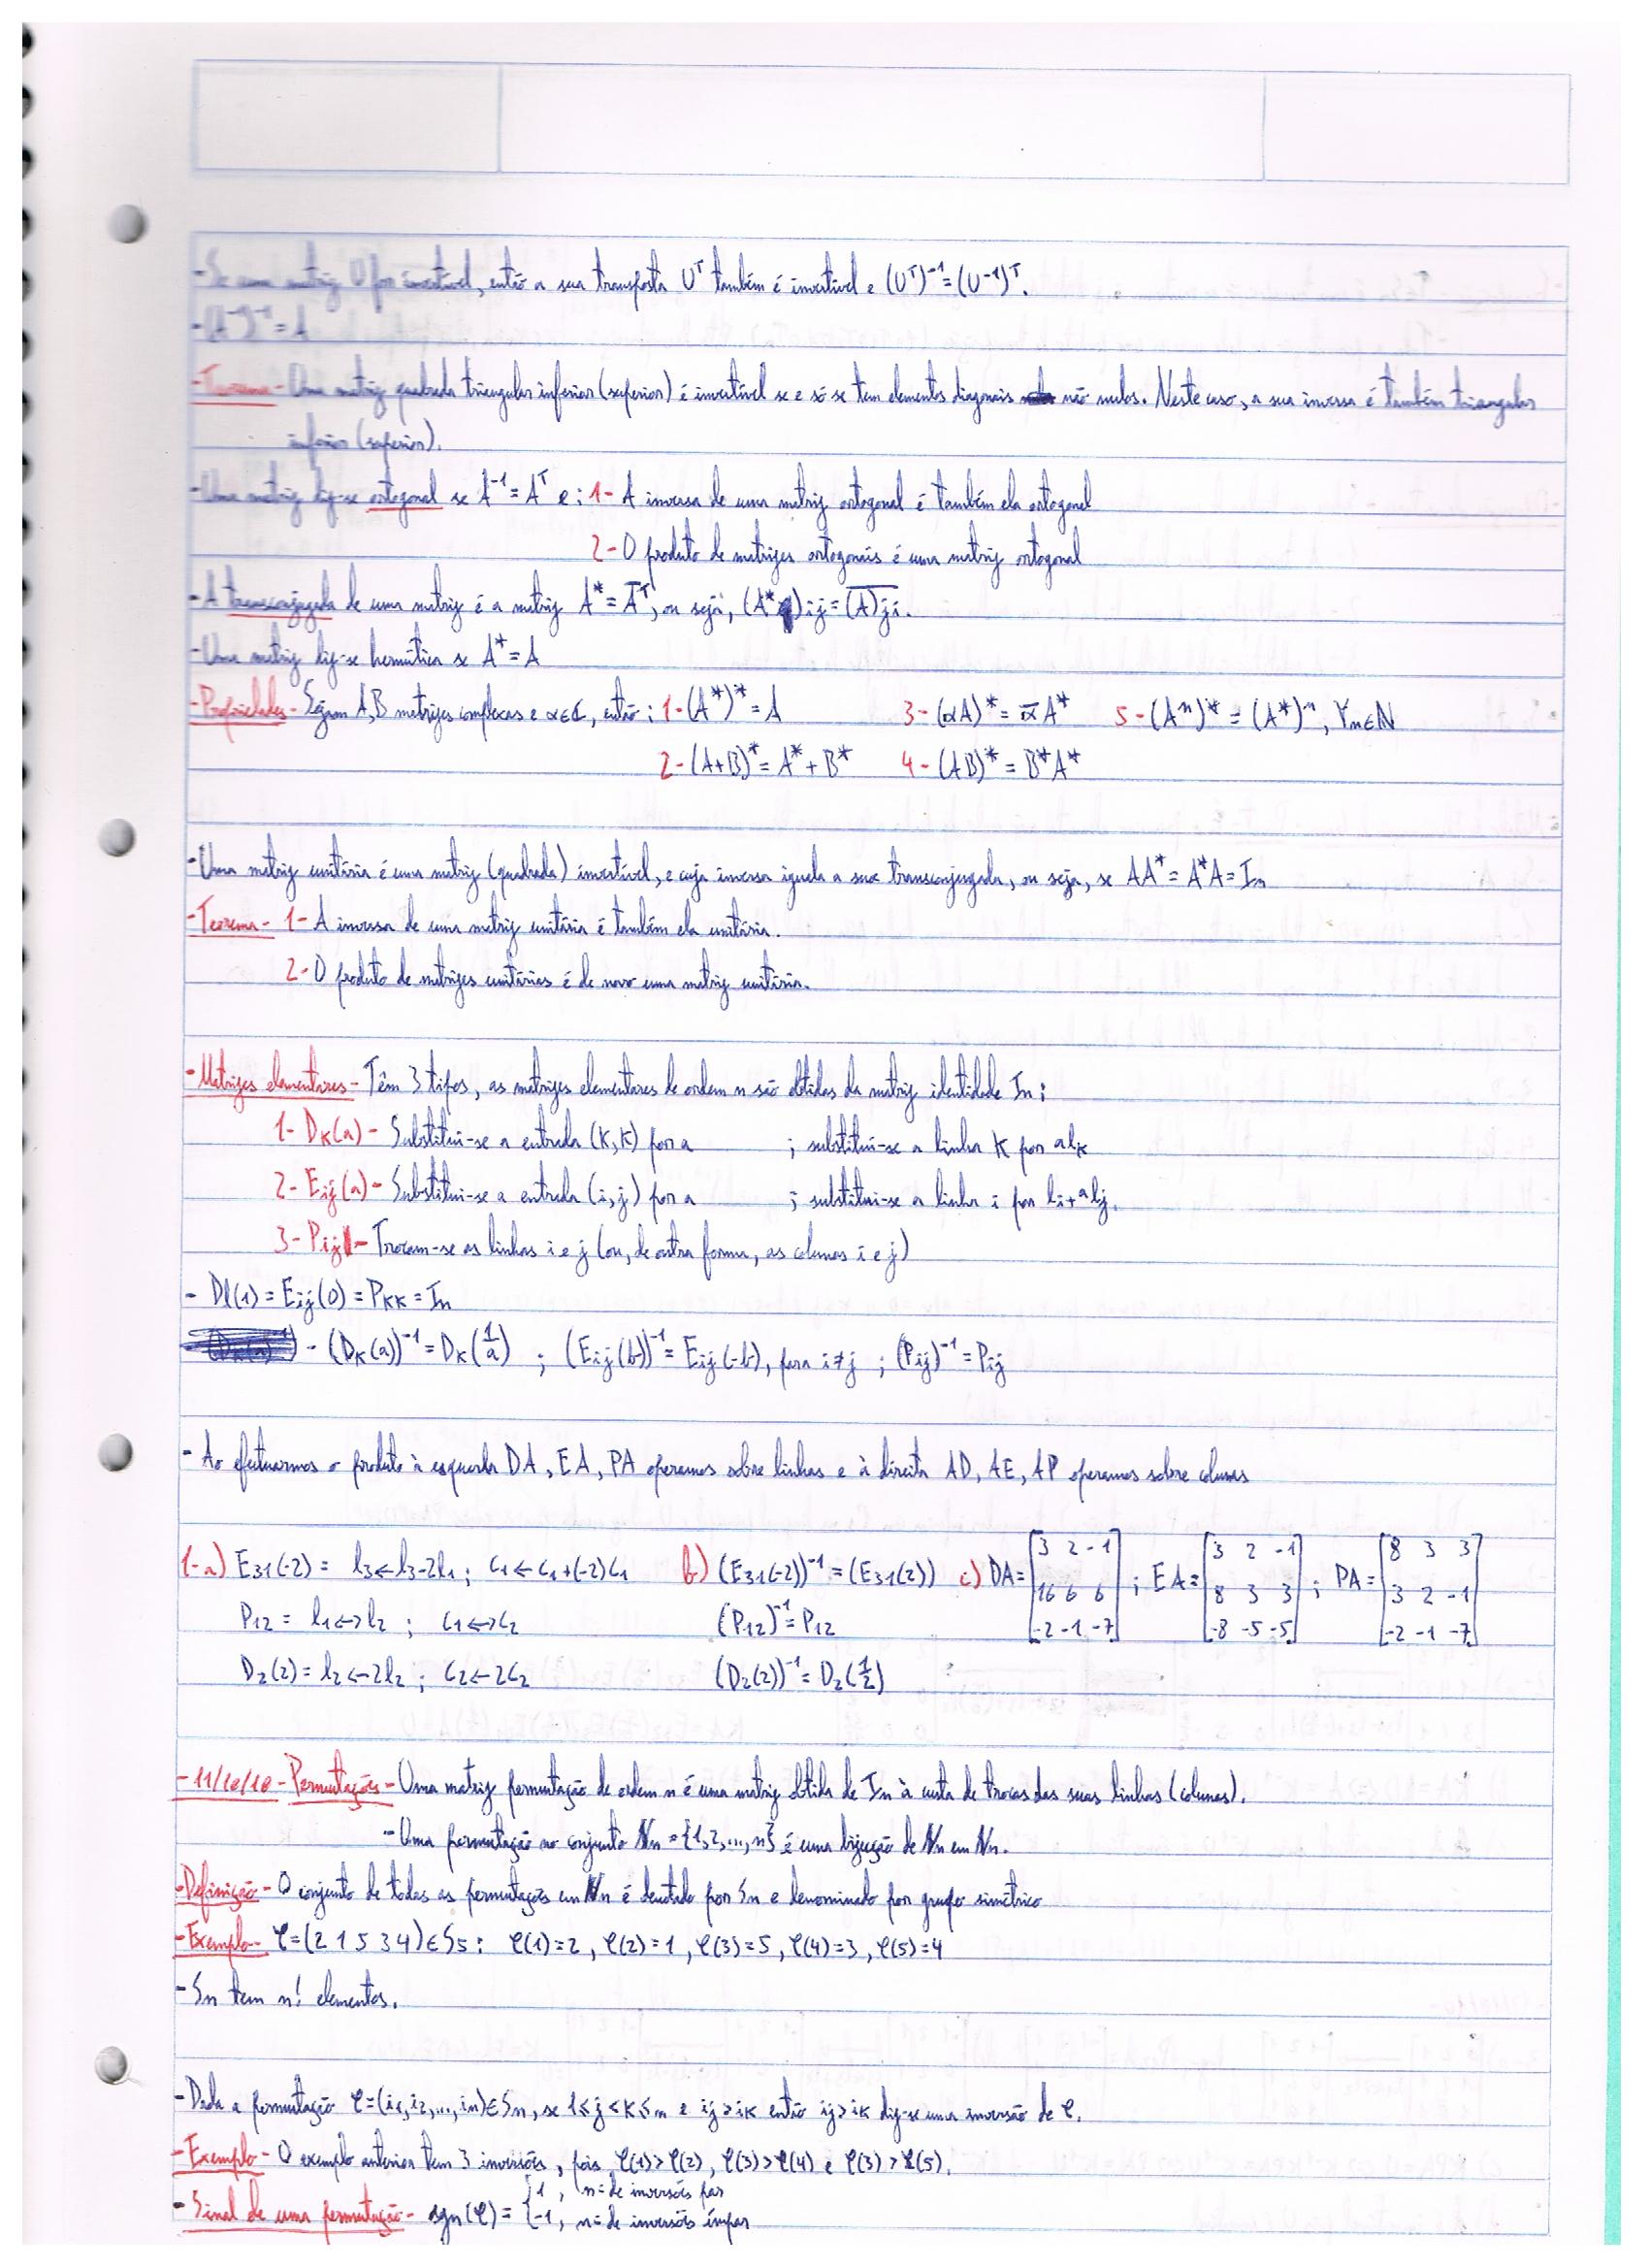 - Se uma matriz U for invertível, então a sua transposta Uᵀ também é invertível e (Uᵀ)⁻¹=(U⁻¹)ᵀ.
- (A⁻¹)⁻¹ = A
- Teorema - Uma matriz quadrada triangular inferior (superior) é invertível se e só se tem elementos diagonais não nulos. Neste caso, a sua inversa é também triangular
inferior (superior).
- Uma matriz diz-se ortogonal se A⁻¹ = Aᵀ e: 1- A inversa de uma matriz ortogonal é também ela ortogonal
2- O produto de matrizes ortogonais é uma matriz ortogonal
- A transconjugada de uma matriz é a matriz A* = A̅ᵀ, ou seja, (A*)ij = \overline{(A)ji}.
- Uma matriz diz-se hermítica se A* = A
- Propriedades - Sejam A,B matrizes complexas e α∈ℂ, então: 1-(A*)* = A 3-(αA)* = α̅A* 5-(Aⁿ)* = (A*)ⁿ, ∀n∈ℕ
2-(A+B)* = A* + B* 4-(AB)* = B*A*
- Uma matriz unitária é uma matriz (quadrada) invertível, e cuja inversa iguala a sua transconjugada, ou seja, se AA* = A*A = In
- Teorema - 1- A inversa de uma matriz unitária é também ela unitária.
2- O produto de matrizes unitárias é de novo uma matriz unitária.
- Matrizes elementares - Têm 3 tipos, as matrizes elementares de ordem n são obtidas da matriz identidade In:
1- DK(a) - Substitui-se a entrada (K,K) por a ; substitui-se a linha K por alK
2- Eij(a) - Substitui-se a entrada (i,j) por a ; substitui-se a linha i por li+alj.
3- Pij - Trocam-se as linhas i e j (ou, de outra forma, as colunas i e j)
- Dl(1) = Eij(0) = PKK = In
- (DK(a))⁻¹ = DK(1/a) ; (Eij(b))⁻¹ = Eij(-b), para i≠j ; (Pij)⁻¹ = Pij
- Ao efetuarmos o produto à esquerda DA, EA, PA operamos sobre linhas e à direita AD, AE, AP operamos sobre colunas
1-a) E31(-2) = l3←l3-2l1 ; C1←C1+(-2)C1 b) (E31(-2))⁻¹ = (E31(2)) c) DA = [3 2 -1; 16 6 6; -2 -1 -7] ; EA = [3 2 -1; 8 3 3; -8 -5 -5] ; PA = [8 3 3; 3 2 -1; -2 -1 -7]
P12 = l1↔l2 ; C1↔C2 (P12)⁻¹ = P12
D2(2) = l2←2l2 ; C2←2C2 (D2(2))⁻¹ = D2(1/2)
- 11/10/18 - Permutações - Uma matriz permutação de ordem n é uma matriz obtida de In à custa de trocas das suas linhas (colunas).
- Uma permutação no conjunto ℕn = {1,2,...,n} é uma bijecção de ℕn em ℕn.
- Definição - O conjunto de todas as permutações em ℕn é denotado por Sn e denominado por grupo simétrico
- Exemplo - φ=(2 1 5 3 4)∈S5: φ(1)=2, φ(2)=1, φ(3)=5, φ(4)=3, φ(5)=4
- Sn tem n! elementos.
- Dada a permutação φ=(i1,i2,...,in)∈Sn, se 1≤j<K≤n e ij>iK então ij>iK diz-se uma inversão de φ.
- Exemplo - O exemplo anterior tem 3 inversões, pois φ(1)>φ(2), φ(3)>φ(4) e φ(3)>φ(5).
- Sinal de uma permutação - sgn(φ) = { 1, nº de inversões par
-1, nº de inversões ímpar